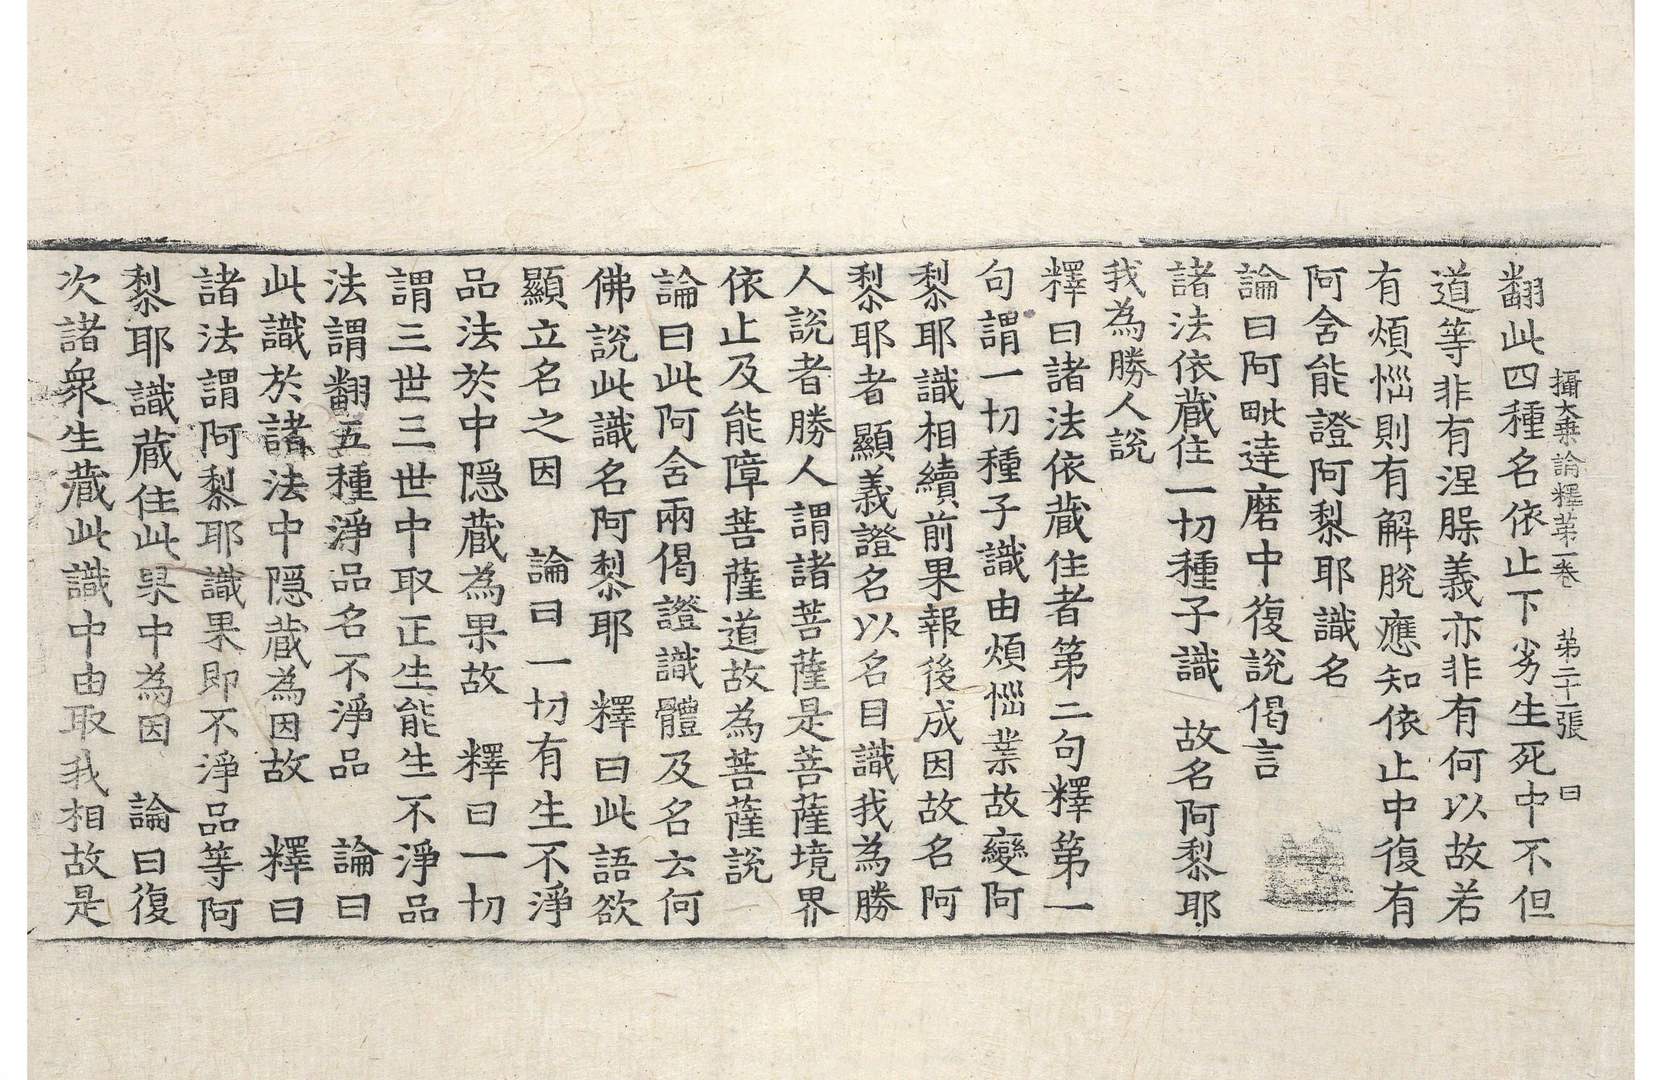 攝大乗論釋第一卷 第二十一張 曰
翻此四種名依止下劣生死中不但
道等非有涅槃義亦非有何以故若
有煩惱則有解脫應知依止中復有
阿含能證阿梨耶識名
論曰阿毗達磨中復說偈言
諸法依藏住一切種子識 故名阿黎耶
我為勝人說
釋曰諸法依藏住者第二句釋第一
句謂一切種子識由煩惱業故變阿
黎耶識相續前果報後成因故名阿
黎耶者顯義證名以名目識我為勝
人說者勝人謂諸菩薩是菩薩境界
依止及能障菩薩道故為菩薩說
論曰此阿含兩偈證識體及名云何
佛說此識名阿黎耶 釋曰此語欲
顯立名之因 論曰一切有生不淨
品法於中隱藏為果故 釋曰一切
謂三世三世中取正生能生不淨品
法謂翻五種淨品名不淨品 論曰
此識於諸法中隱藏為因故 釋曰
諸法謂阿黎耶識果即不淨品等阿
黎耶識藏住此果中為因 論曰復
次諸衆生藏此識中由取我相故是